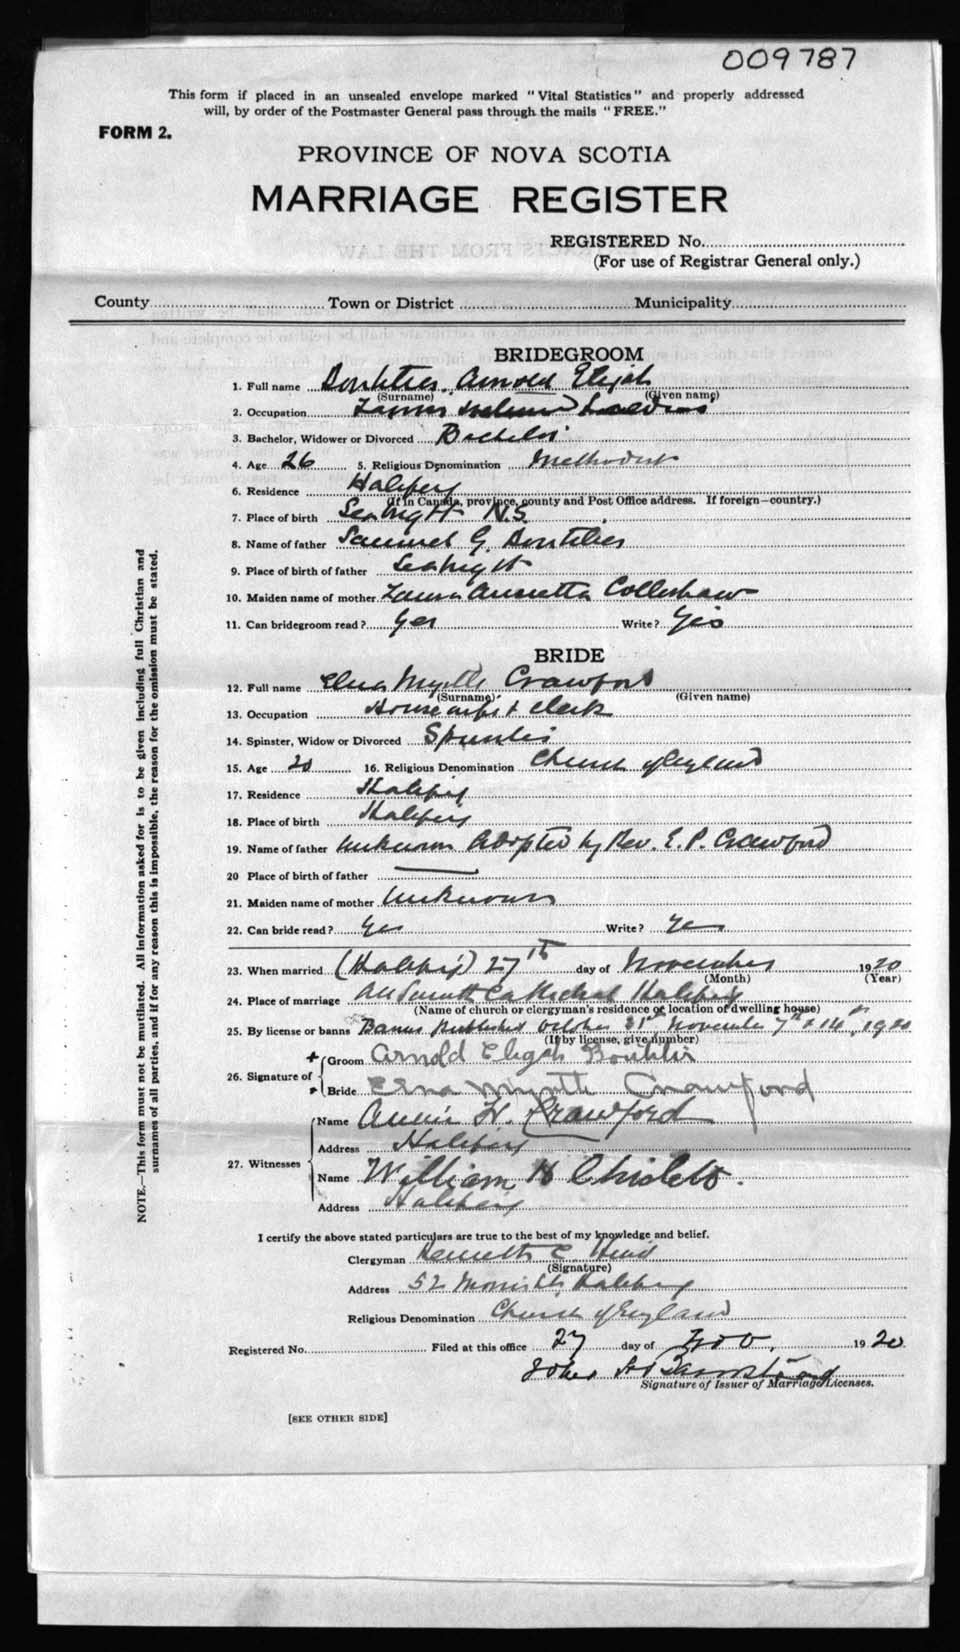 009787
This form if placed in an unsealed envelope marked "Vital Statistics" and properly addressed
will, by order of the Postmaster General pass through the mails "FREE."
FORM 2.
PROVINCE OF NOVA SCOTIA
MARRIAGE REGISTER
REGISTERED No.
(For use of Registrar General only.)
County Town or District Municipality
BRIDEGROOM
1. Full name Boutilier Arnold Elijah
(Surname) (Given name)
2. Occupation
3. Bachelor, Widower or Divorced Bachelor
4. Age 26 5. Religious Denomination Methodist
6. Residence Halifax
(If in Canada, province, county and Post Office address. If foreign—country.)
7. Place of birth Seabright N.S.
8. Name of father Samuel G. Boutilier
9. Place of birth of father Seabright
10. Maiden name of mother Laura Collishaw
11. Can bridegroom read? Yes Write? Yes
BRIDE
12. Full name Elna Myrtle Crawford
(Surname) (Given name)
13. Occupation & clerk
14. Spinster, Widow or Divorced Spinster
15. Age 20 16. Religious Denomination Church of England
17. Residence Halifax
18. Place of birth Halifax
19. Name of father Unknown Adopted by Rev. E. P. Crawford
20 Place of birth of father
21. Maiden name of mother Unknown
22. Can bride read? Yes Write? Yes
23. When married (Halifax) 27th day of November 1920
(Month) (Year)
24. Place of marriage All Saints Cathedral Halifax
(Name of church or clergyman's residence or location of dwelling house)
25. By license or banns Banns published October 31st, November 7th & 14th, 1920
(If by license, give number)
26. Signature of
+ Groom Arnold Elijah Boutilier
Bride Elna Myrtle Crawford
27. Witnesses
Name Annie H. Crawford
Address Halifax
Name William H
Address Halifax
I certify the above stated particulars are true to the best of my knowledge and belief.
Clergyman Kenneth C. Hind
(Signature)
Address 52 Morris St, Halifax
Religious Denomination Church of England
Registered No. Filed at this office 27 day of Nov. 1920
Signature of Issuer of Marriage Licenses.
[SEE OTHER SIDE]
NOTE.—This form must not be mutilated. All information asked for is to be given including full Christian and
surnames of all parties, and if for any reason this is impossible, the reason for the omission must be stated.